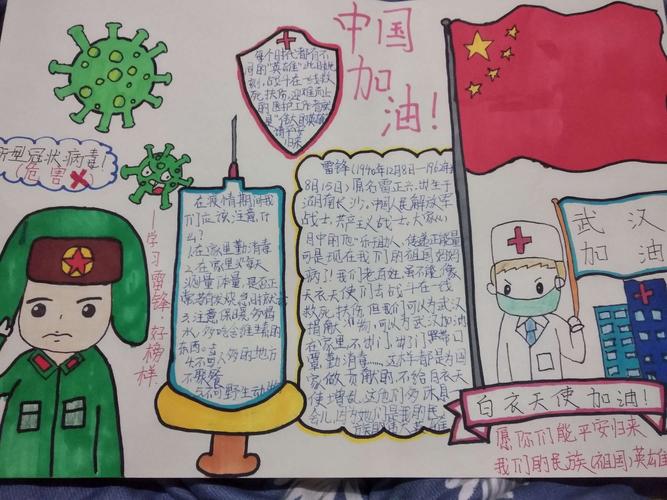 中国
加油!
每个时代都有不
同的"英雄"此时此
刻,战斗在一线救
死扶伤,迎难而上
的医护工作者就
是
归来
新型冠状病毒!
(危害)
在疫情期间我
们应该注意什
么?
1.在家里勤消毒
2.在家里每天
测量体量,是否正
3.注意保暖,多喝
水,多吃含维生素的
东西。
4.不去人多的地方
不聚餐
5.不向野生动物
学习雷锋 好榜样
雷锋(1940年12月8日—1962年
8月15日)原名雷正兴,出生于
湖南长沙,中国人民解放军
战士,共产主义战士,大家心
目中的他"乐于助人、传递正能量
可是现在我们的祖国妈妈
病了!我们老百姓虽不能像
天衣天使们去战斗在一线
救死扶伤但我们可以为武汉
捐献 可以为武汉加油
在家里不出门,出门 口
罩勤消毒……这样都是为国
家做贡献的,不给白衣天
使增乱
武汉
加油
白衣天使加油!
愿你们能平安归来
我们的民族(祖国)英雄